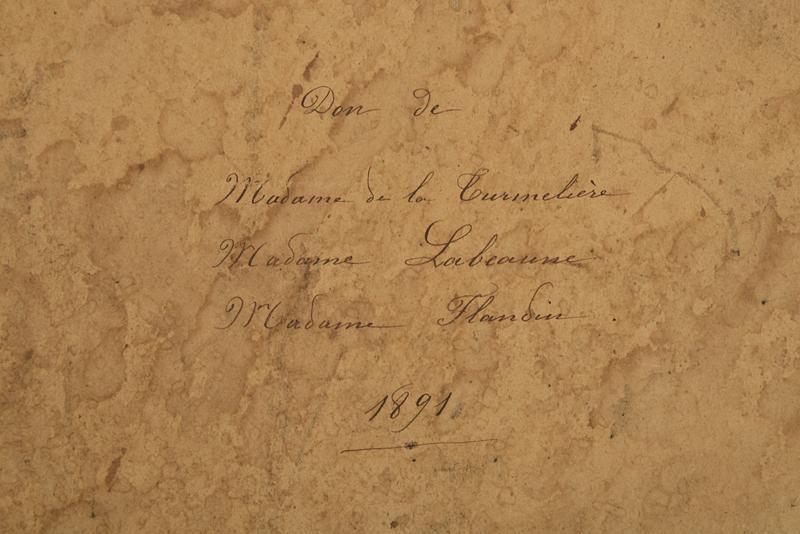 Don de
Madame de la Turmelière
Madame Labeaune
Madame Flandin.
1891